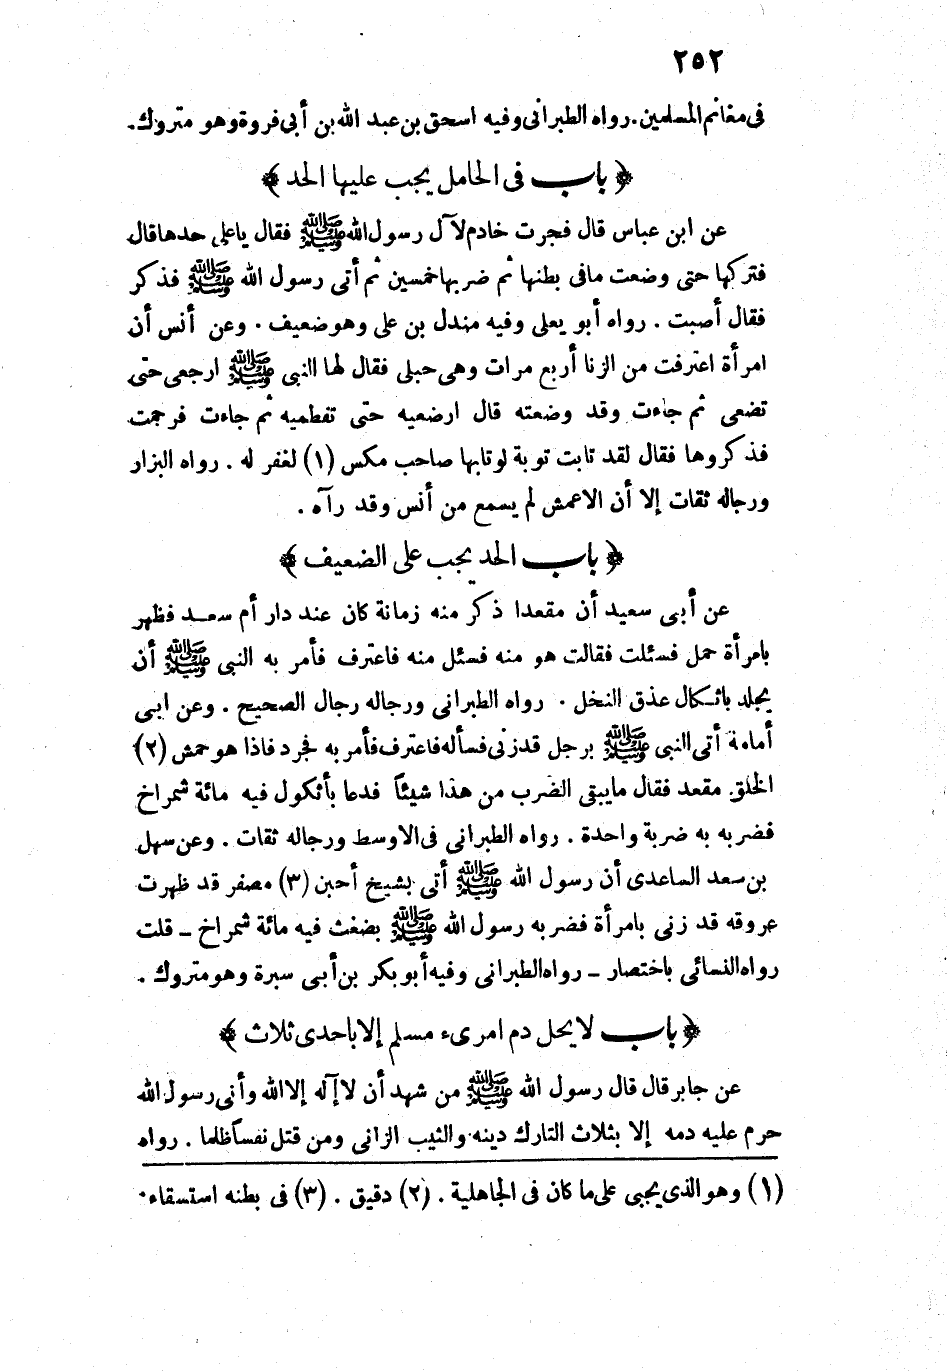 ٢٥٢
فى مغانم المسلمين. رواه الطبرانى وفيه اسحق بن عبد الله بن أبى فروة وهو متروك.
﴿ باب فى الحامل يجب عليها الحد ﴾
عن ابن عباس قال فجرت خادم لآل رسول الله ﷺ فقال ياعلى حدها قال
فتركها حتى وضعت مافى بطنها ثم ضربها خمسين ثم أتى رسول الله ﷺ فذكر
فقال أصبت . رواه أبو يعلى وفيه مندل بن على وهو ضعيف . وعن أنس أن
امرأة اعترفت من الزنا أربع مرات وهى حبلى فقال لها النبى ﷺ ارجعى حتى
تضعى ثم جاءت وقد وضعته قال ارضعيه حتى تفطميه ثم جاءت فرجمت
فذكروها فقال لقد تابت توبة لوتابها صاحب مكس (١) لغفر له . رواه البزار
ورجاله ثقات إلا أن الاعمش لم يسمع من أنس وقد رآه .
﴿ باب الحد يجب على الضعيف ﴾
عن أبى سعيد أن مقعدا ذكر منه زمانة كان عند دار أم سعد فظهر
بامرأة حمل فسئلت فقالت هو منه فسئل منه فاعترف فأمر به النبى ﷺ أن
يجلد باثكال عذق النخل . رواه الطبرانى ورجاله رجال الصحيح . وعن ابى
أمامة أتى النبى ﷺ برجل قد زنى فسأله فاعترف فأمر به فجرد فاذا هو حمش (٢)
الخلق مقعد فقال مايبقى الضرب من هذا شيئاً فدعا بأثكول فيه مائة شمراخ
فضربه به ضربة واحدة . رواه الطبرانى فى الاوسط ورجاله ثقات . وعن سهل
بن سعد الساعدى أن رسول الله ﷺ أتى بشيخ أحبن (٣) مصفر قد ظهرت
عروقه قد زنى بامرأة فضربه رسول الله ﷺ بضغث فيه مائة شمراخ - قلت
رواه النسائى باختصار - رواه الطبرانى وفيه أبو بكر بن أبى سبرة وهو متروك .
﴿ باب لا يحل دم امرىء مسلم إلا باحدى ثلاث ﴾
عن جابر قال قال رسول الله ﷺ من شهد أن لاإله إلا الله وأنى رسول الله
حرم عليه دمه إلا بثلاث التارك دينه والثيب الزانى ومن قتل نفساً ظلما . رواه
(١) وهو الذى يجبى على ما كان فى الجاهلية . (٢) دقيق . (٣) فى بطنه استسقاء .